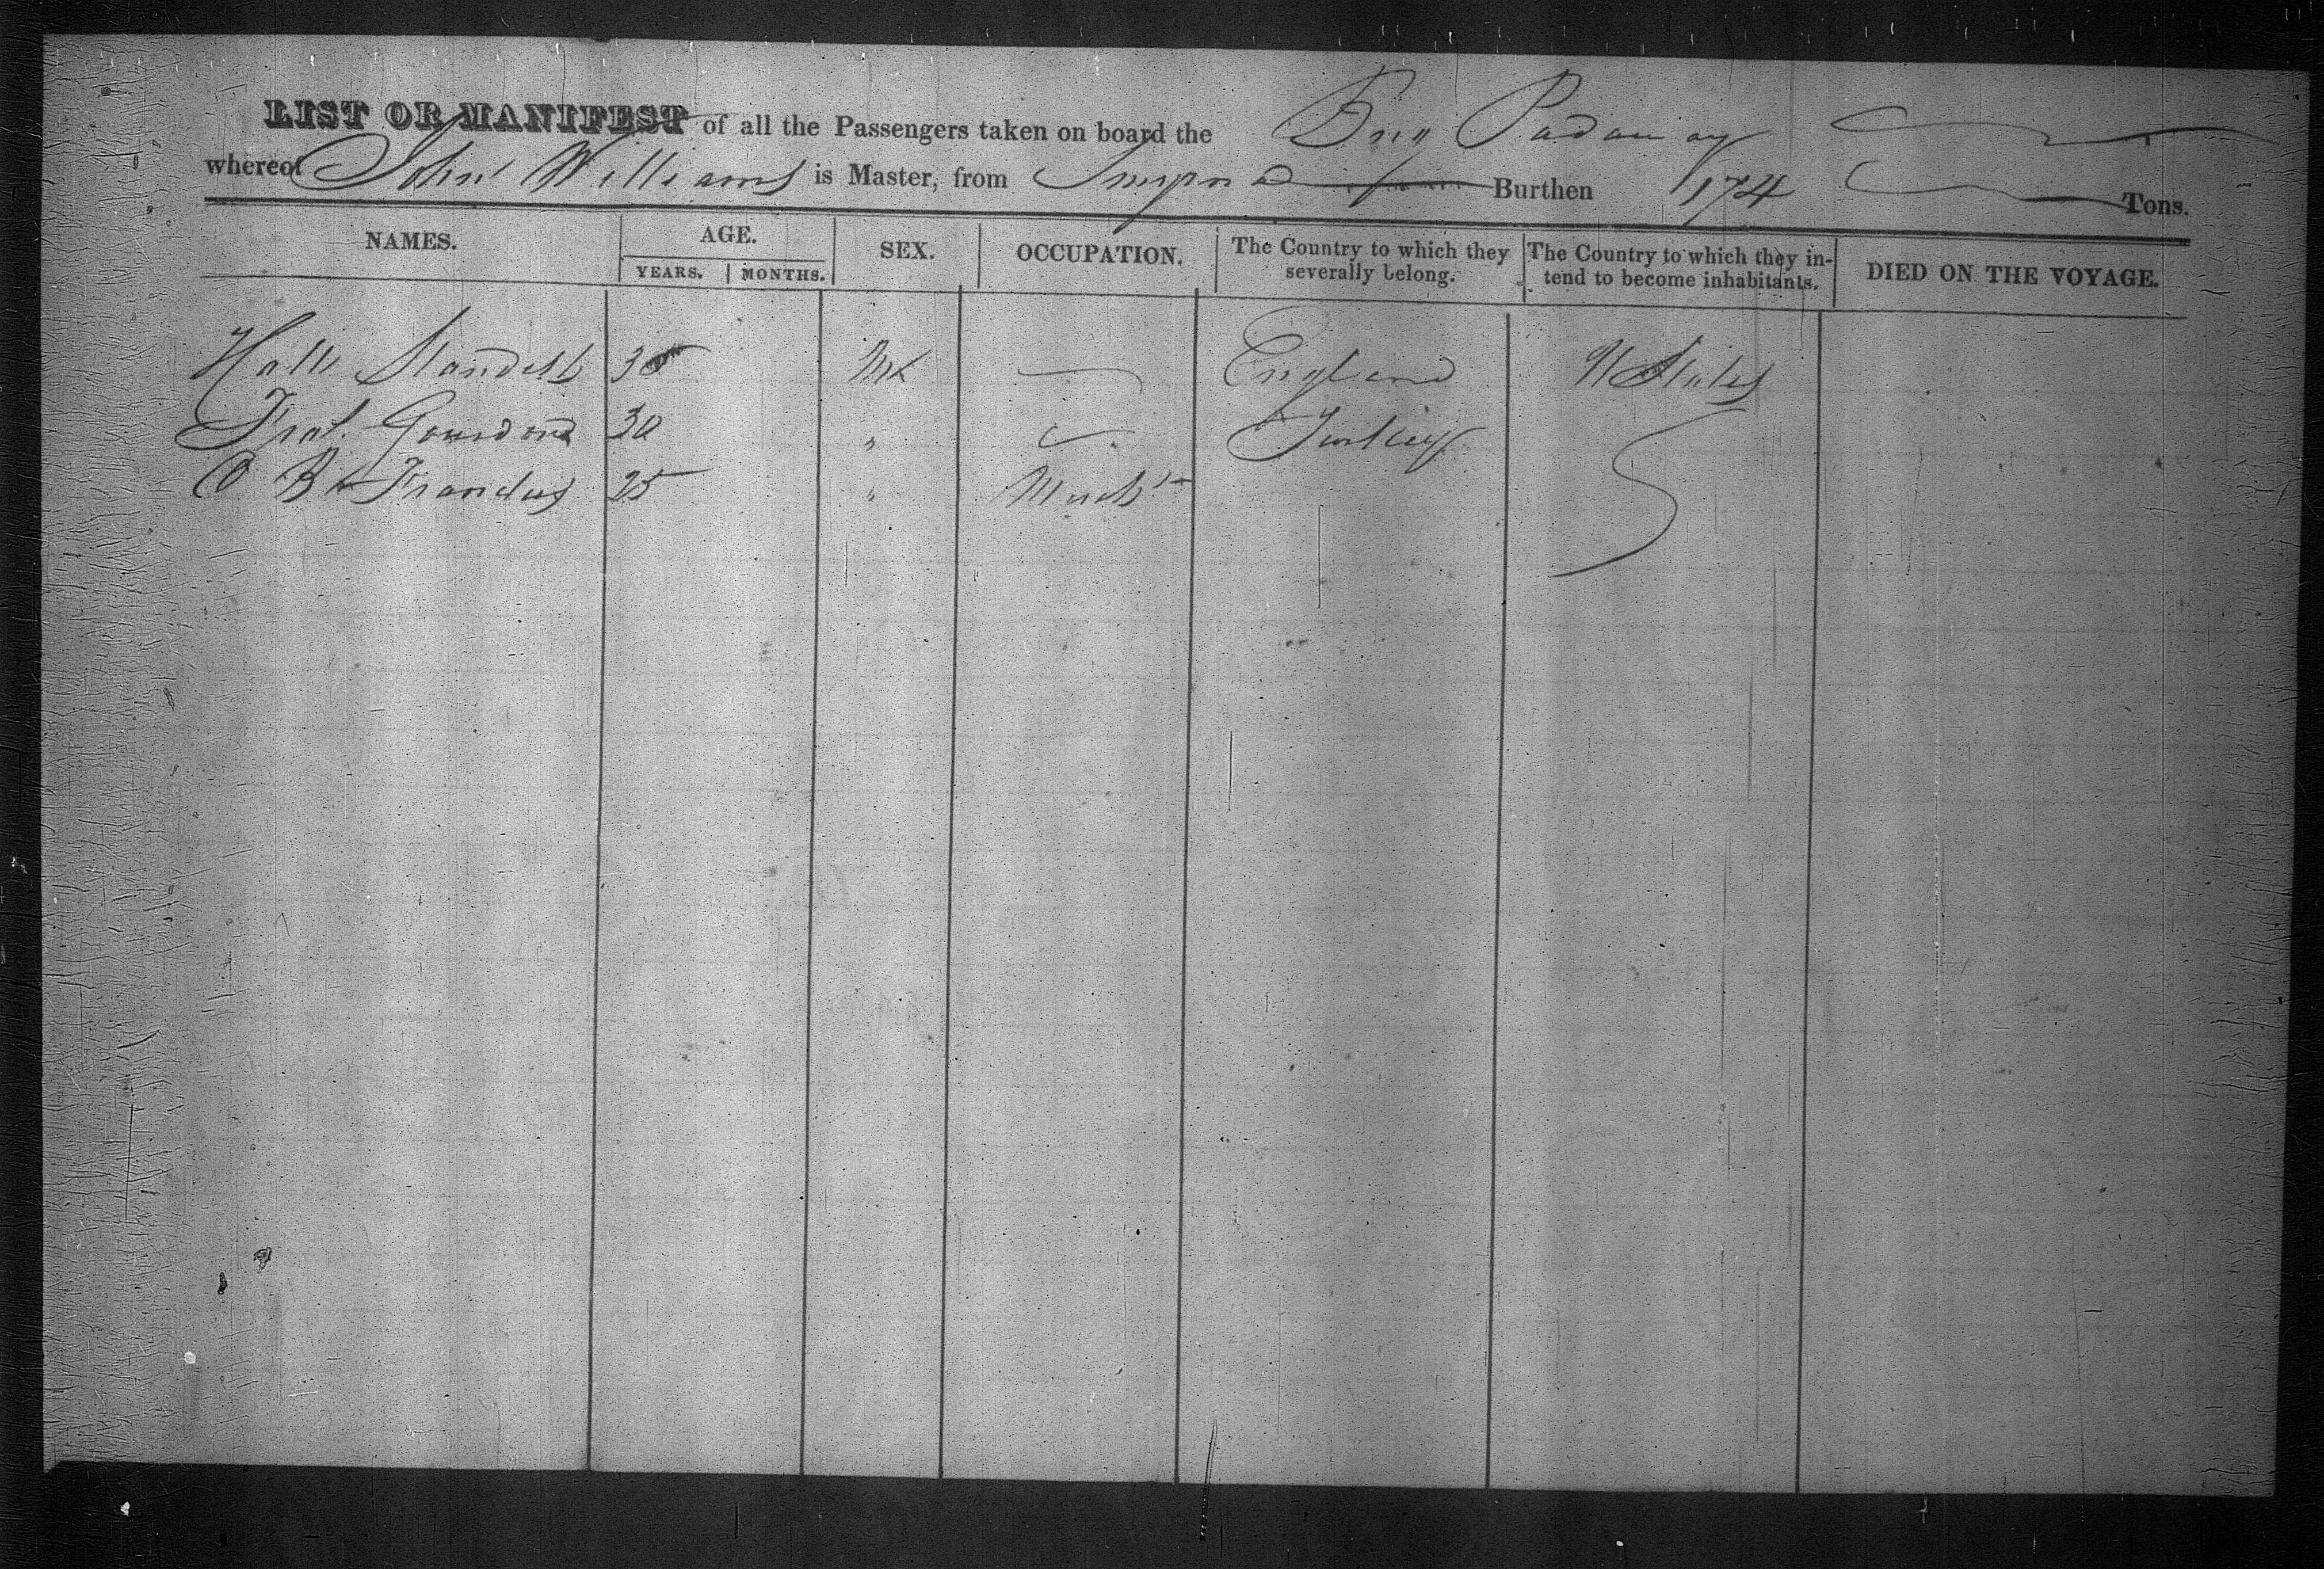 LIST OR MANIFEST of all the Passengers taken on board the Brig Padang
whereof John Williams is Master, from Smyrna Burthen 174 Tons.
NAMES. AGE. SEX. OCCUPATION. The Country to which they severally belong. The Country to which they intend to become inhabitants. DIED ON THE VOYAGE.
YEARS. MONTHS.
30 England U States
30 " Turkey
25 " Mercht